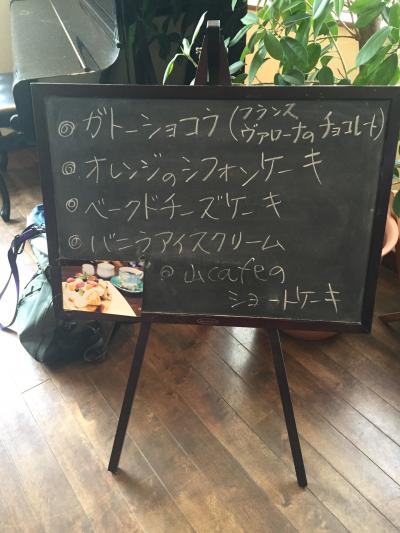 ◎ ガトーショコラ(フランス ヴァローナのチョコレート)
◎ オレンジのシフォンケーキ
◎ ベークドチーズケーキ
◎ バニラアイスクリーム
◎ 山cafeの
ショートケーキ